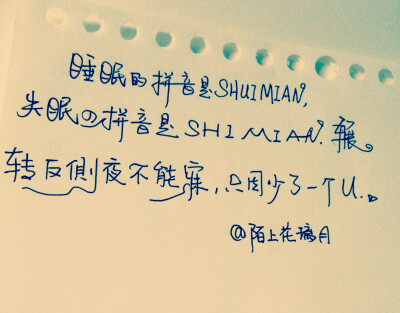 睡眠的拼音是SHUIMIAN,
失眠の拼音是SHIMIAN.辗。
转反側夜不能寐,只因少了一个U...
@陌上花璃月